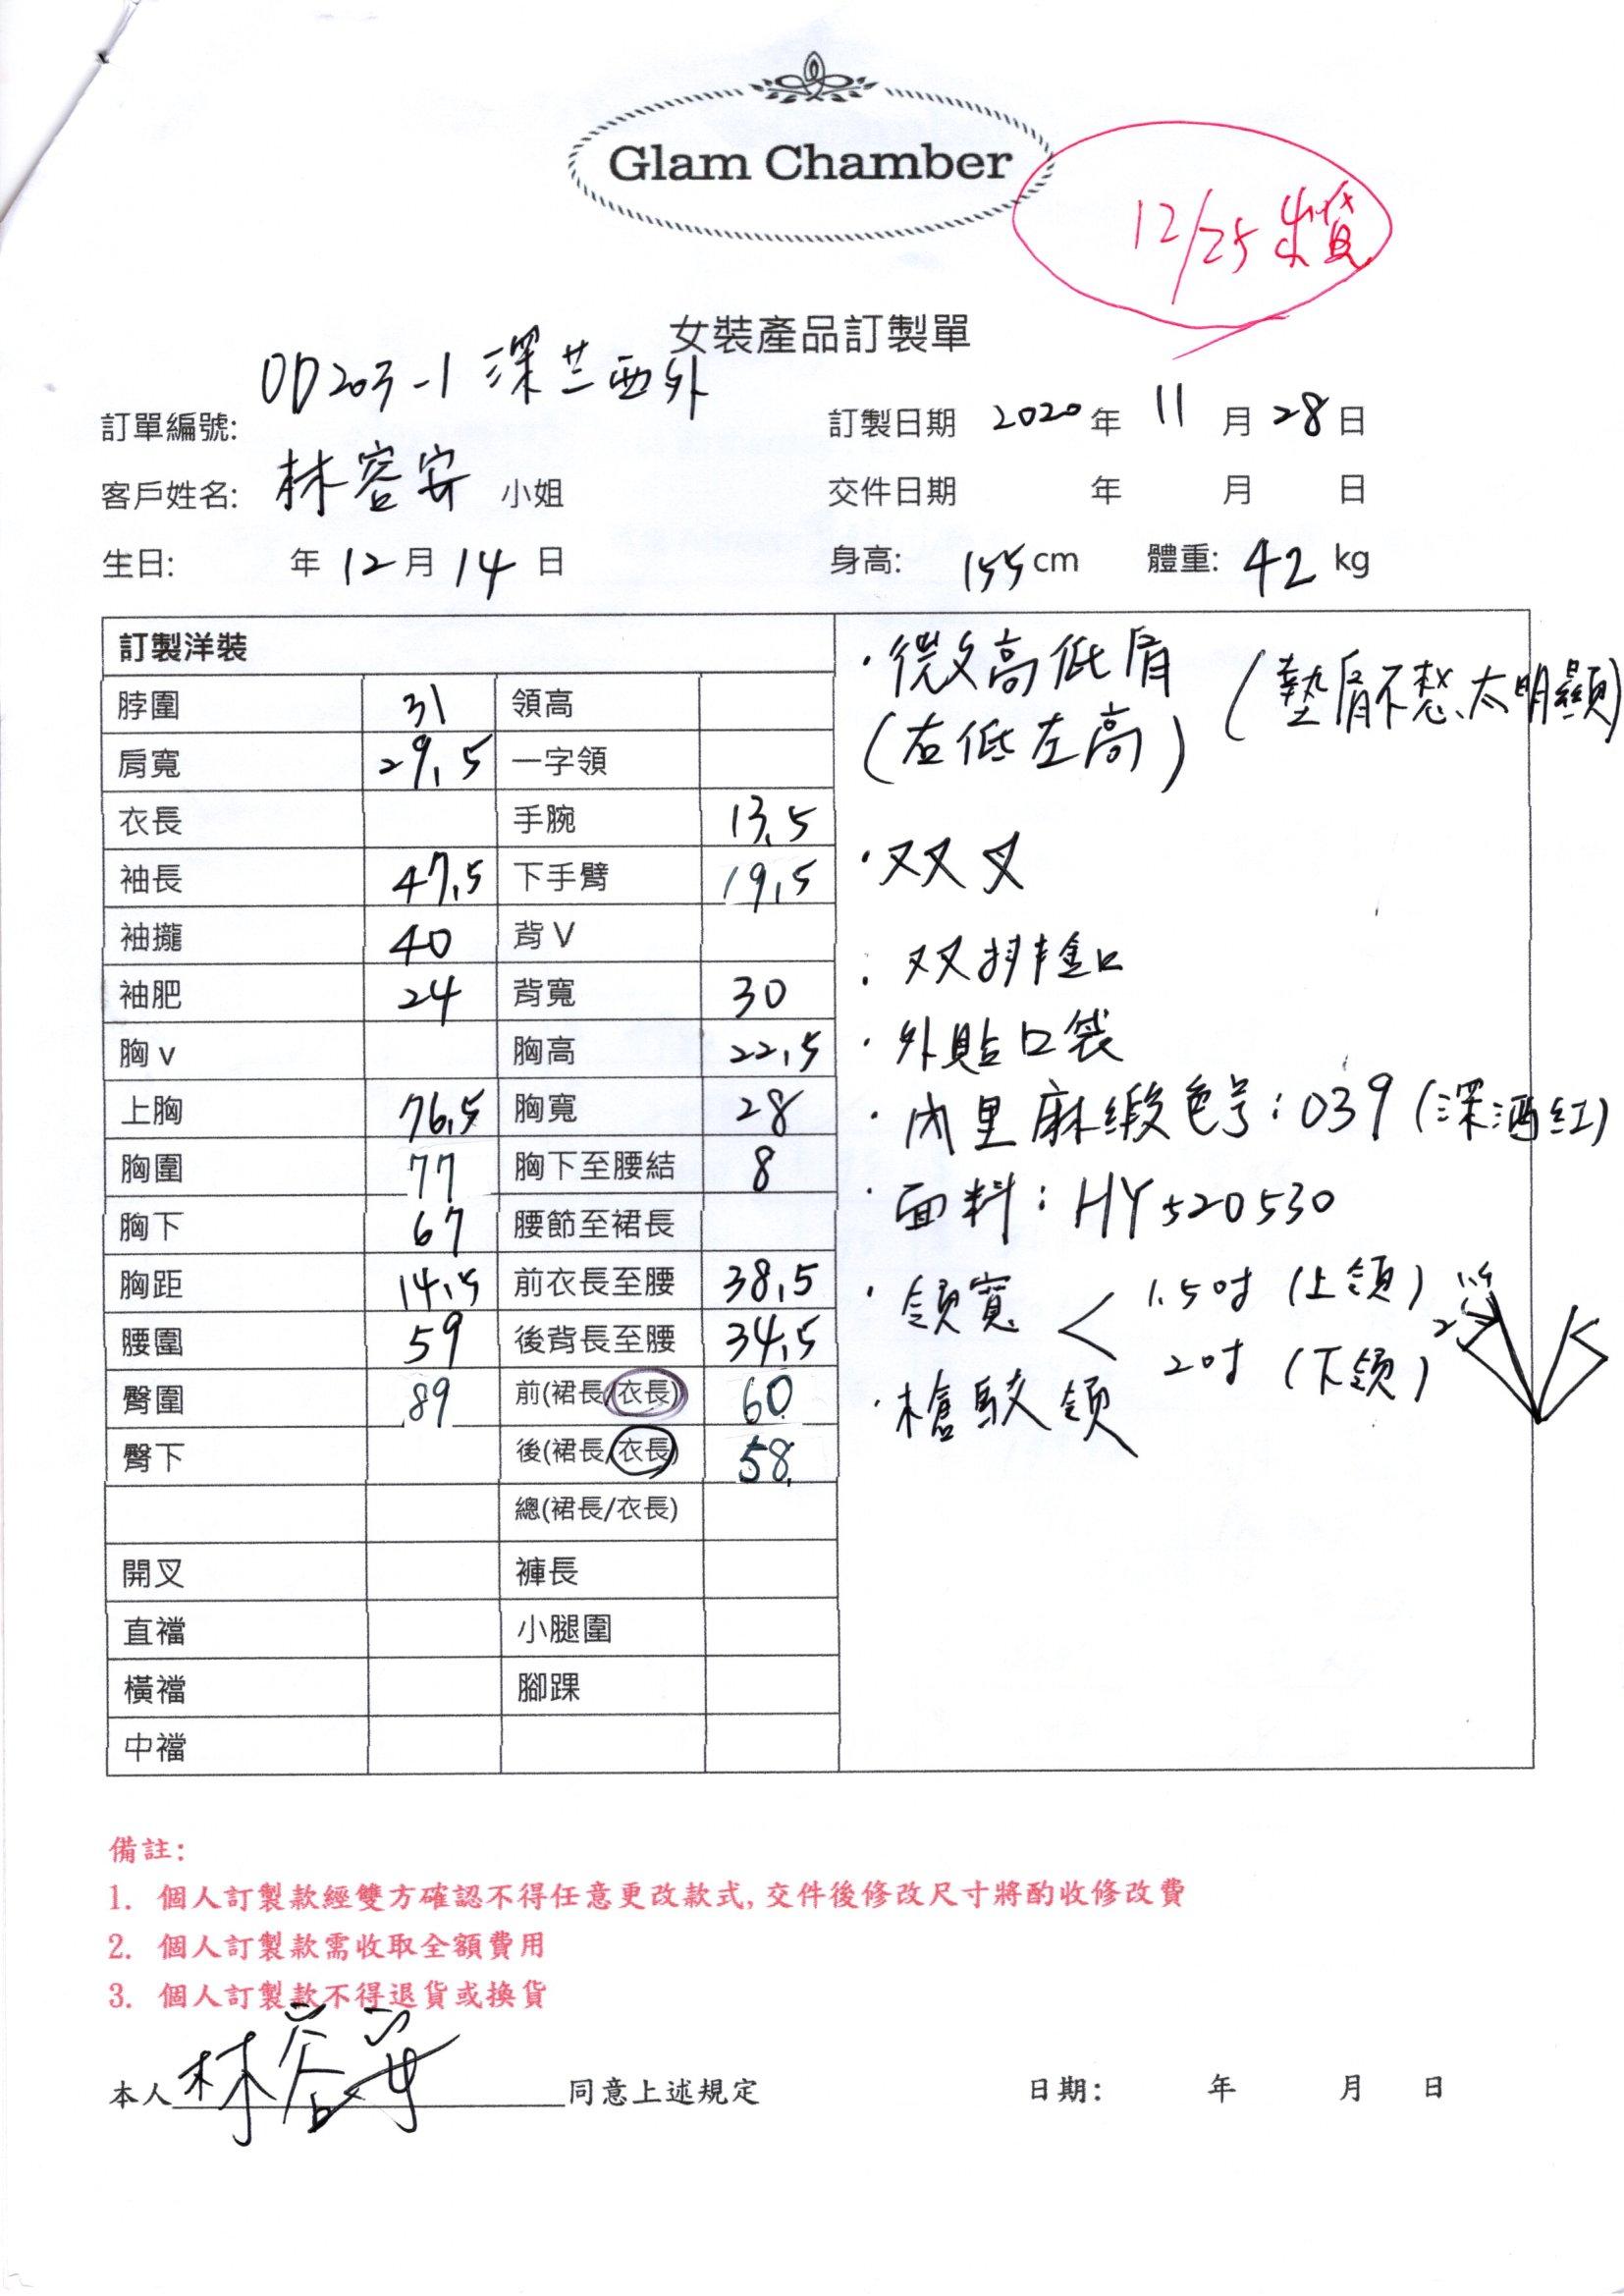 Glam Chamber
12/25
女裝產品訂製單
訂單編號: OD203-1 深兰西外
訂製日期 2020 年 11 月 28 日
客戶姓名: 林容安 小姐
交件日期 年 月 日
生日: 年 12 月 14 日
身高: 155 cm 體重: 42 kg
訂製洋裝
脖圍 31 領高
肩寬 29.5 一字領
衣長 手腕 13.5
袖長 47.5 下手臂 19.5
袖攏 40 背 V
袖肥 24 背寬 30
胸 v 胸高 22.5
上胸 76.5 胸寬 28
胸圍 77 胸下至腰結 8
胸下 67 腰節至裙長
胸距 14.5 前衣長至腰 38.5
腰圍 59 後背長至腰 34.5
臀圍 89 前(裙長/衣長) 60
臀下 後(裙長/衣長) 58
總(裙長/衣長)
開叉 褲長
直襠 小腿圍
橫襠 腳踝
中襠
·微高低肩 (墊肩不想太明顯)
(右低左高)
·双叉
·双排釦
·外貼口袋
·內里麻緞色号:039 (深酒红)
·面料:HY520530
·領寬 < 1.5吋 (上領) 1.5
2吋 (下領) 2
·槍駁領
備註:
1. 個人訂製款經雙方確認不得任意更改款式,交件後修改尺寸將酌收修改費
2. 個人訂製款需收取全額費用
3. 個人訂製款不得退貨或換貨
本人 林容安 同意上述規定 日期: 年 月 日